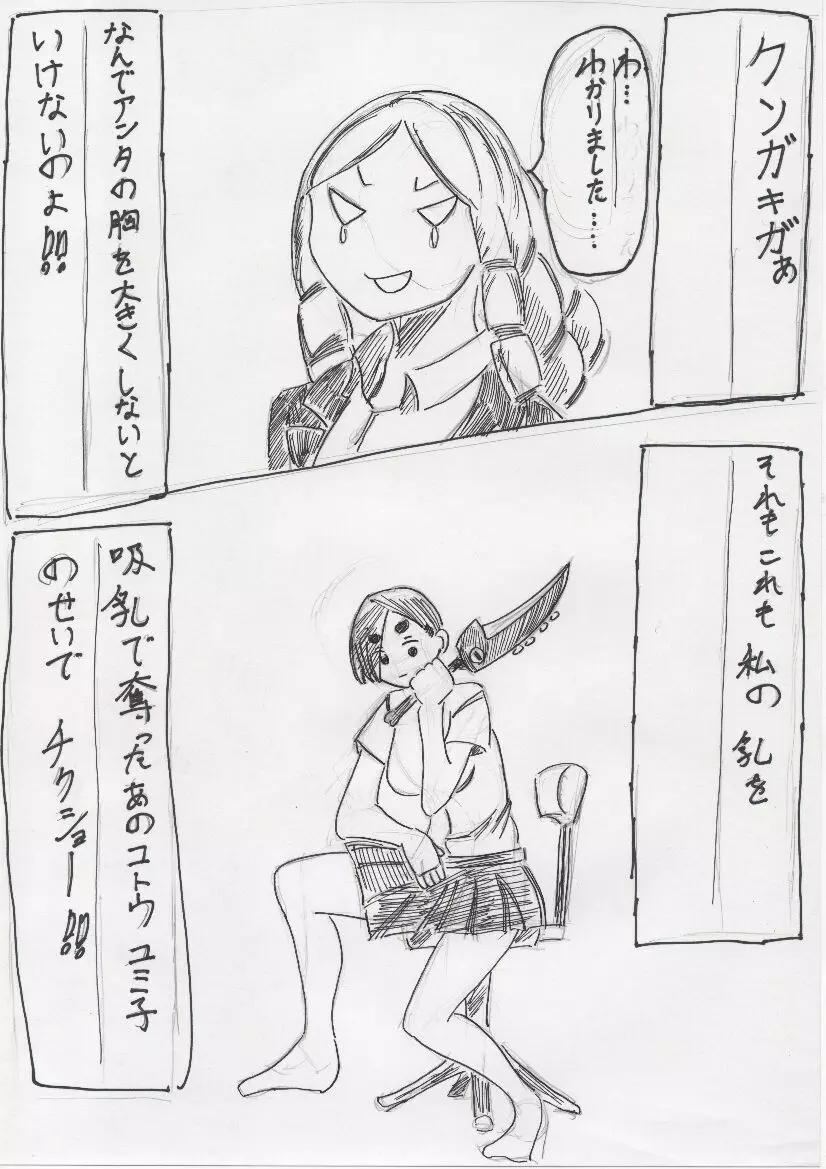 クソガキがぁ
わ…
わかりました……
なんでアンタの胸を大きくしないと
いけないのよ!!!
それもこれも私の乳を
吸乳で奪ったあのコトウユミ子
のせいで チクショー!!!